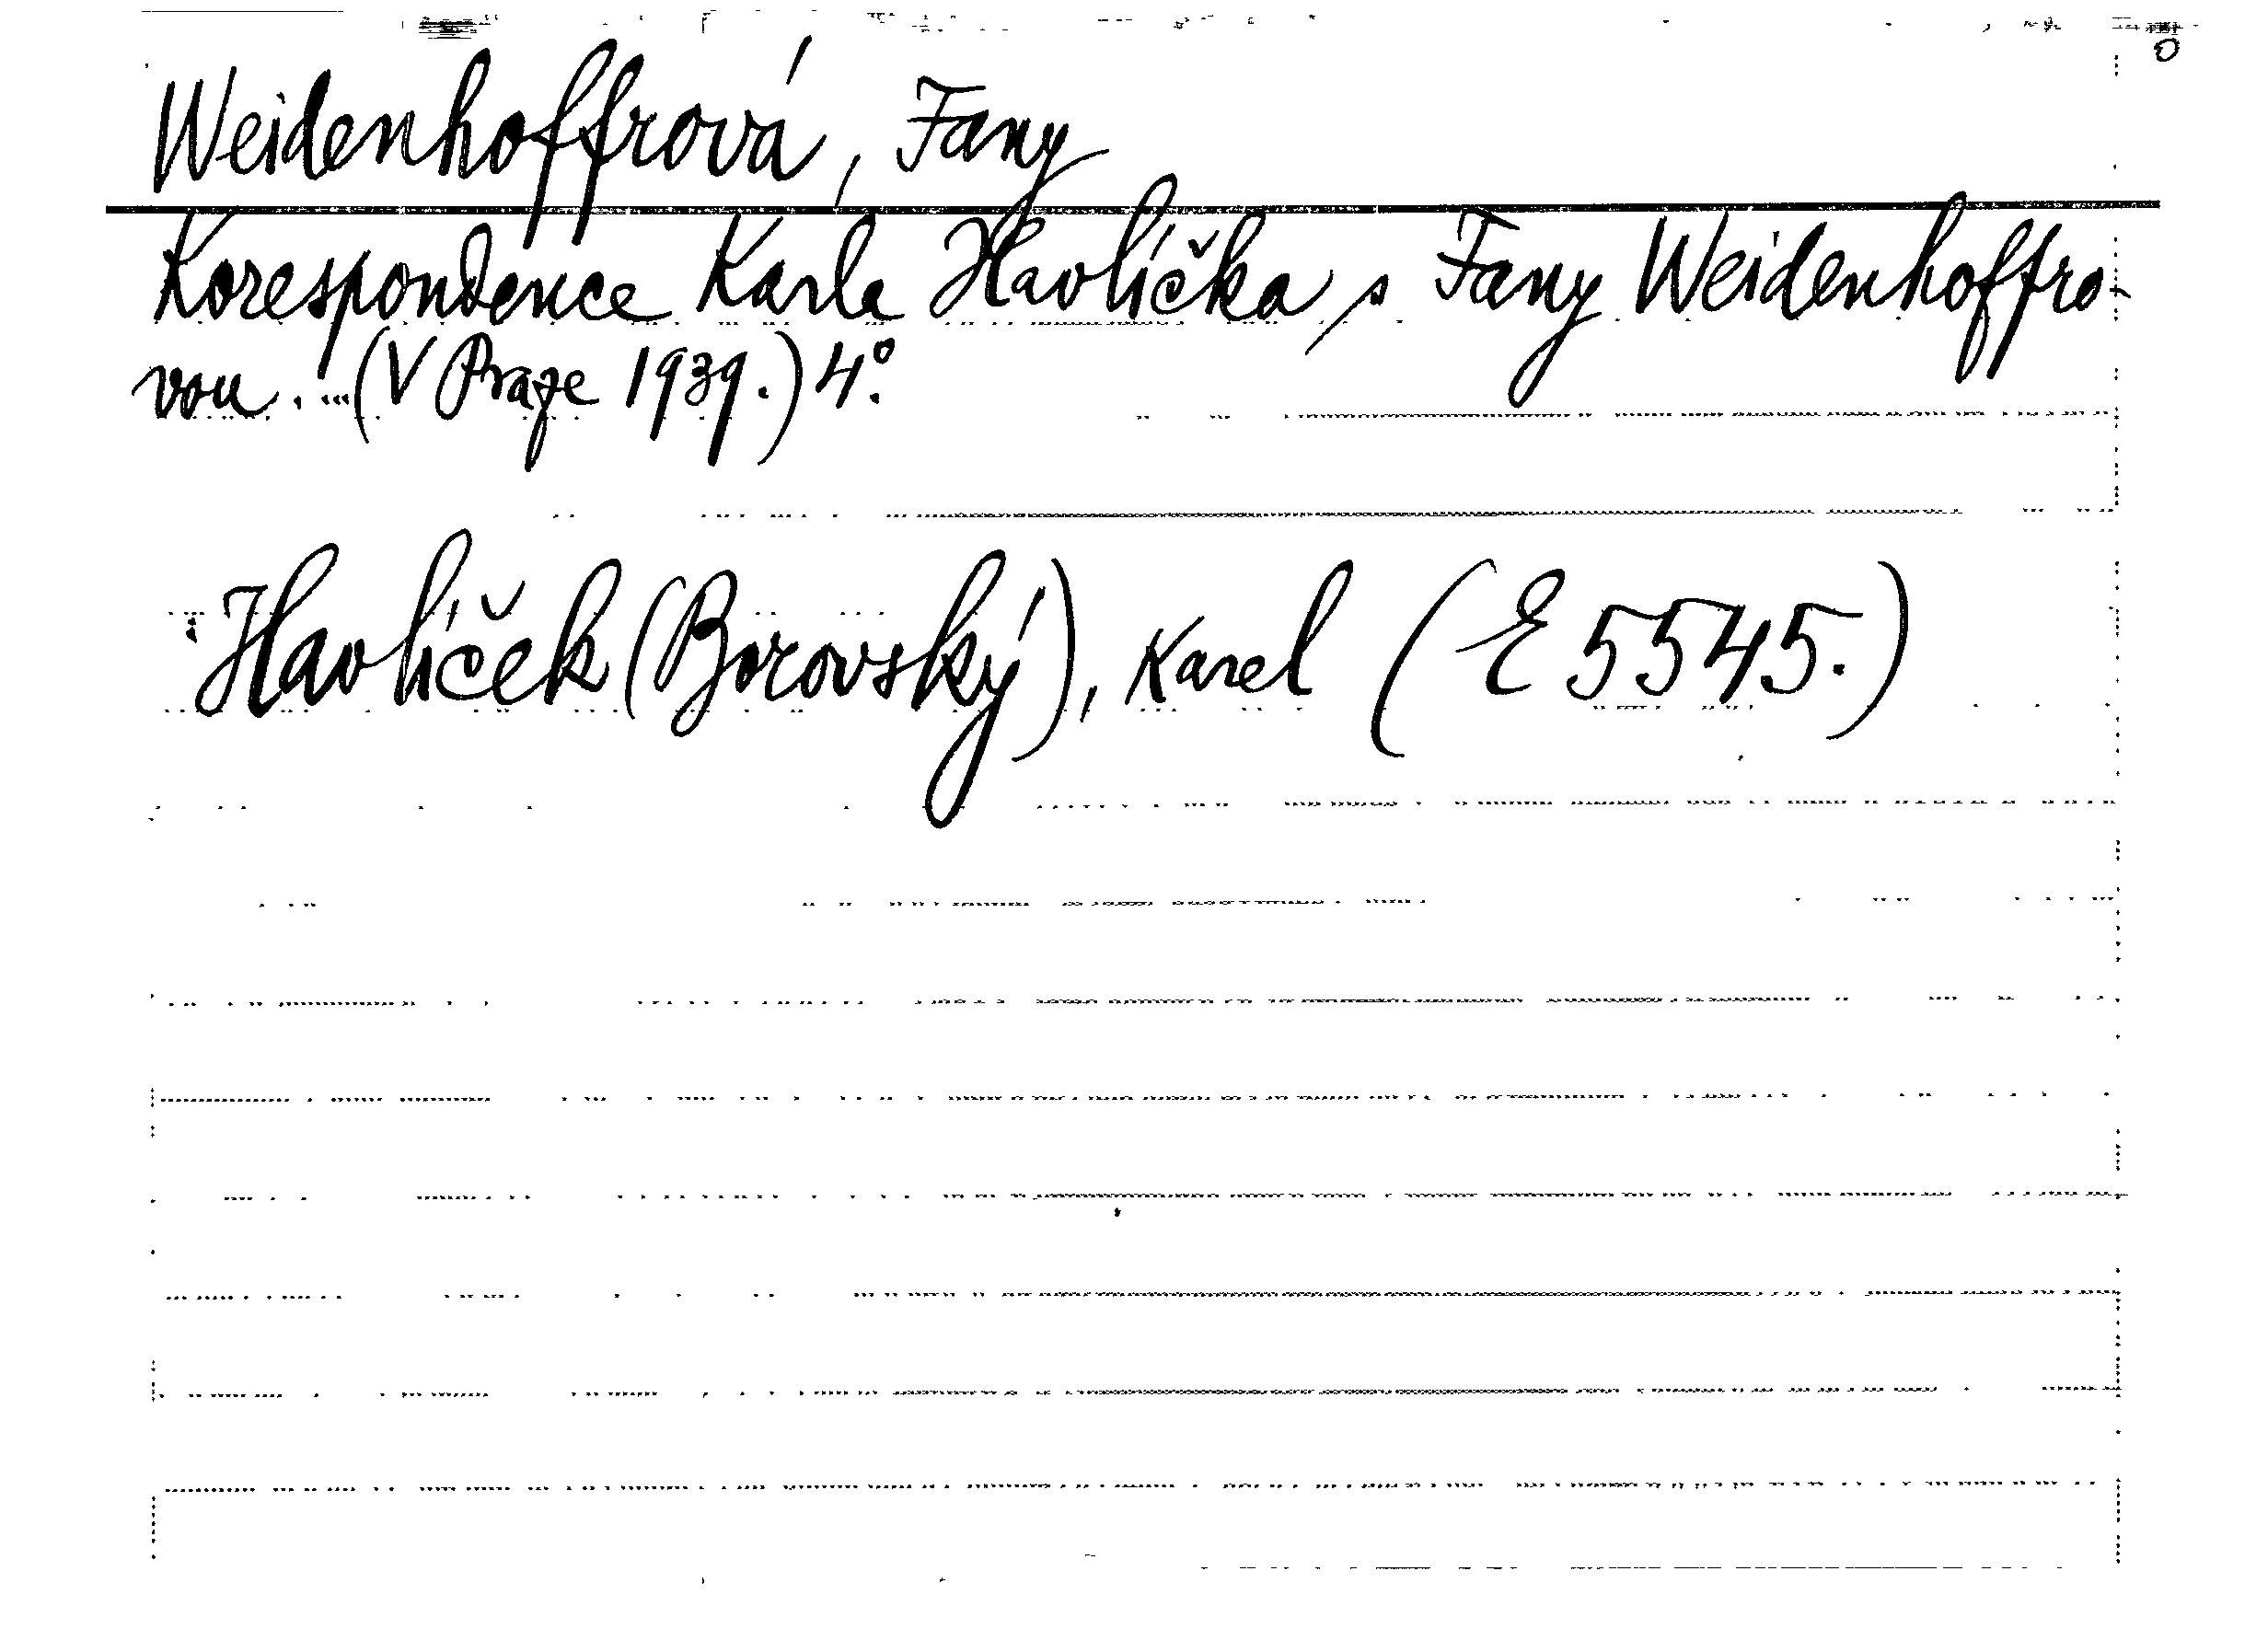 Weidenhoffrová, Fany
Korespondence Karla Havlíčka s Fany Weidenhoffro-
vou. ... (V Praze 1939.) 4°.
Havlíček (Borovský), Karel (E 5545.)